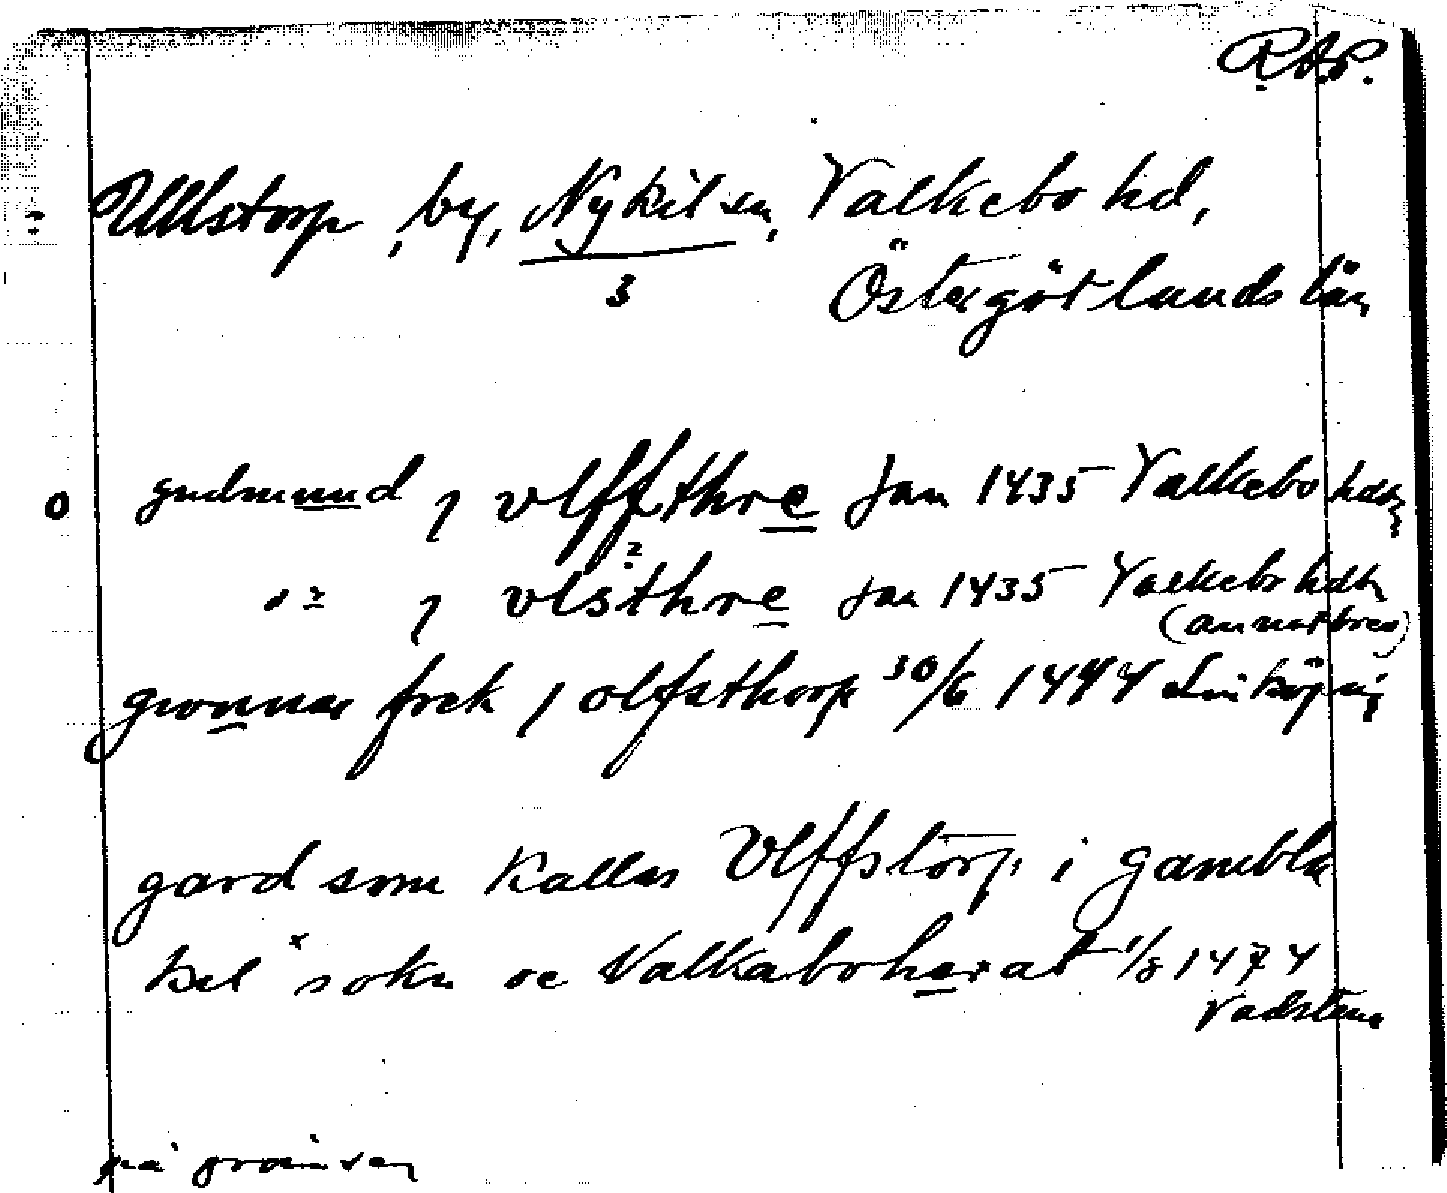 R.A.P.
Ullstorp, by, Nykil sn, Valkebo hd,
3
Östergötlands län
gudmund j vlffthre Jan 1435 Valkebo hdtn
?
" j vlsthre Jan 1435 Valkebo hdtn
(annat brev)
gwnnar frek j olfsthorp 30/6 1444 Linköping
gard som kallas Vlffstorp i gambla
kil sokn oc Valkabohærat 1/8 1474
Vadstena
på gränsen